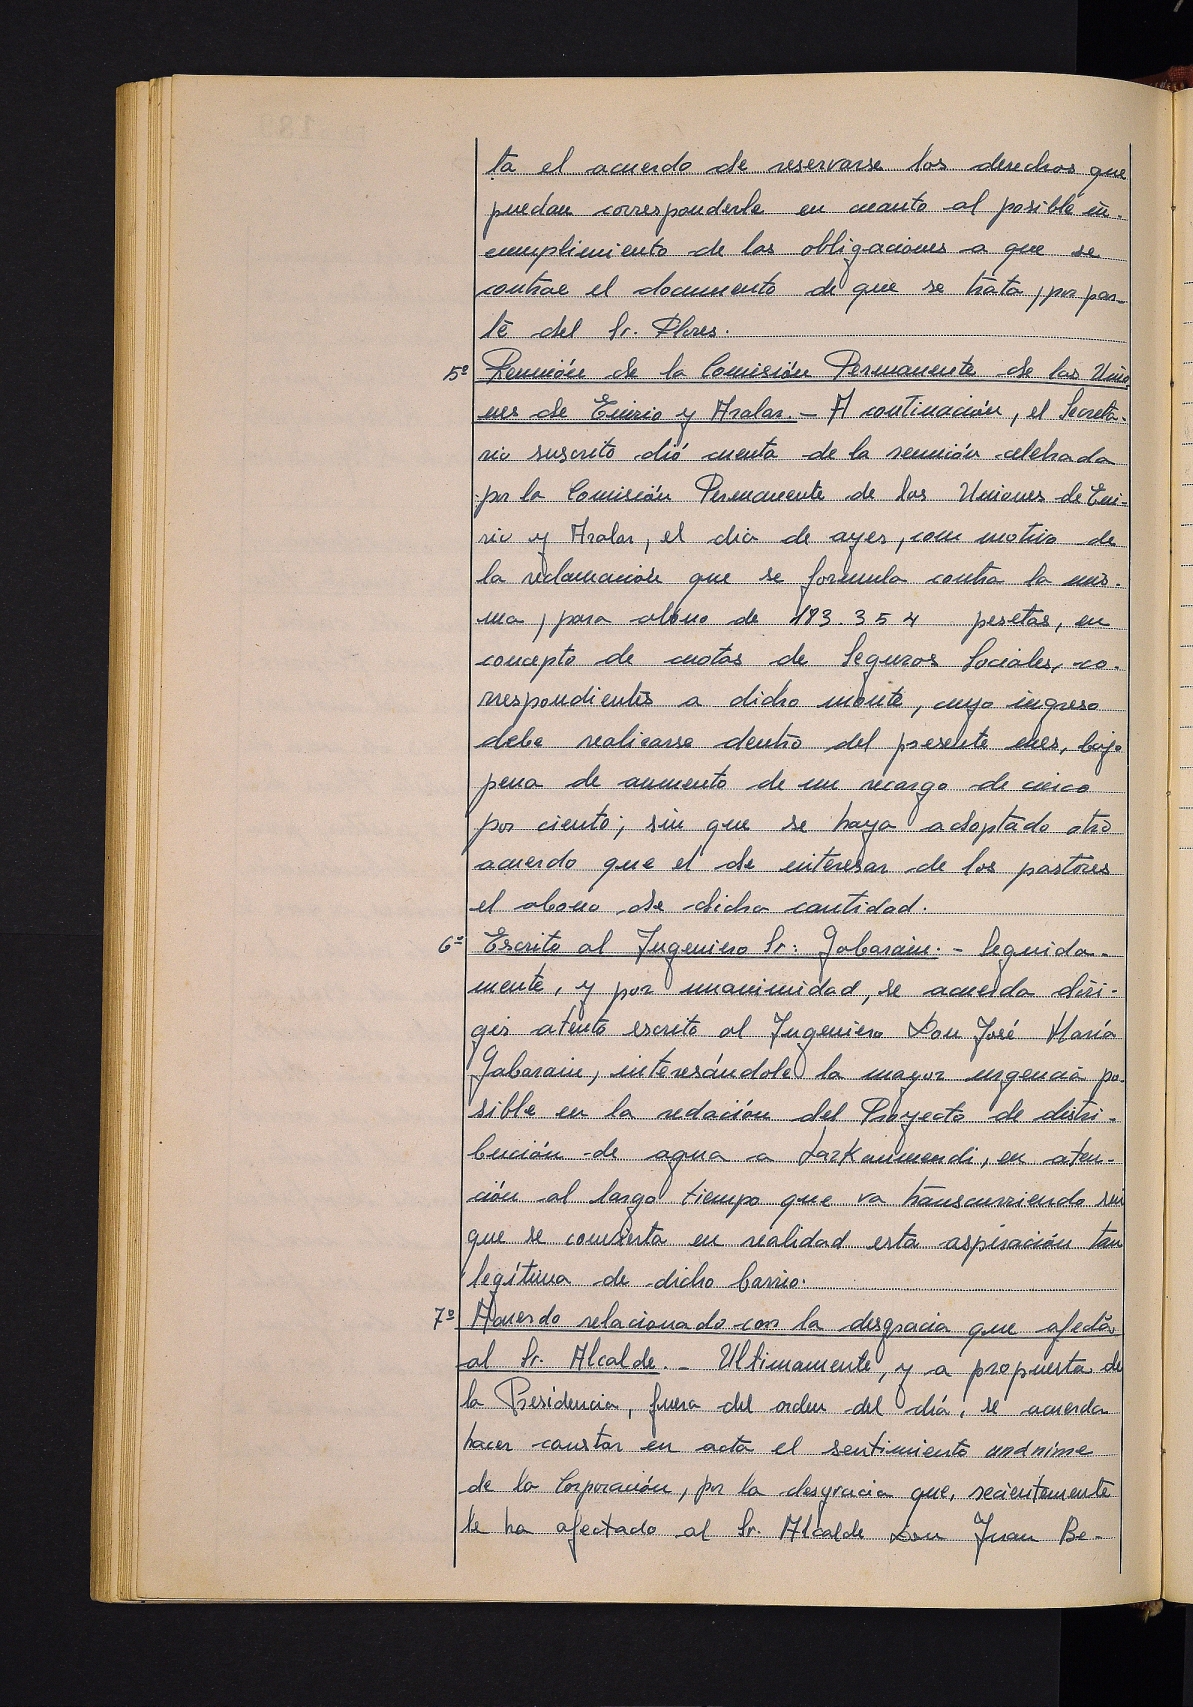 ta el acuerdo de reservarse los derechos que
puedan corresponderle en cuanto al posible in-
cumplimiento de las obligaciones a que se
contrae el documento de que se trata, por par-
te del Sr. Flores.
5º Reunión de la Comisión Permanente de las Unio
nes de Enirio y Aralar. - A continuación, el Secreta-
rio suscrito dió cuenta de la reunión celebrada
por la Comisión Permanente de las Uniones de Eni-
rio y Aralar, el dia de ayer, con motivo de
la reclamación que se formula contra la mis-
ma, para abono de 183.354 pesetas, en
concepto de cuotas de Seguros Sociales, co-
rrespondientes a dicho monte, cuyo ingreso
debe realizarse dentro del presente mes, bajo
pena de aumento de un recargo de cinco
por ciento; sin que se haya adoptado otro
acuerdo que el de interesar de los pastores
el abono de dicha cantidad.
6º Escrito al Ingeniero Sr. Gabarain. - Seguida-
mente, y por unanimidad, se acuerda diri-
gir atento escrito al Ingeniero Don José María
Gabarain, interesándole la mayor urgencia po-
sible en la redación del Proyecto de distri-
bución de agua a Lazkaumendi, en aten-
ción al largo tiempo que va transcurriendo sin
que se convierta en realidad esta aspiración tan
legítima de dicho barrio.
7º Acuerdo relacionado con la desgracia que afecta
al Sr. Alcalde. - Ultimamente, y a propuesta de
la Presidencia, fuera del orden del día, se acuerda
hacer constar en acta el sentimiento unánime
de la Corporación, por la desgracia que, recientemente
le ha afectado al Sr. Alcalde Don Juan Be-